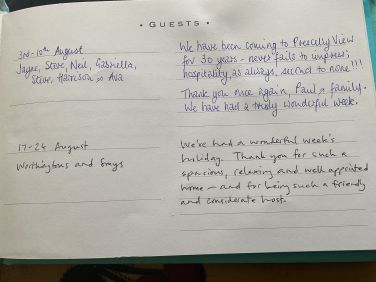 • GUESTS •
3rd - 10th August
Jayne, Steve, Neil, Gabriella,
Steve, Harrison & Ava
We have been coming to Prescelly View
for 30 years - never fails to impress;
hospitality, as always, second to none!!!
Thank you once again, Paul & family.
We have had a truly wonderful week.
17-24 August
Worthingtons and
We've had a wonderful week's
holiday. Thank you for such a
spacious, relaxing and well appointed
home - and for being such a friendly
and considerate host.